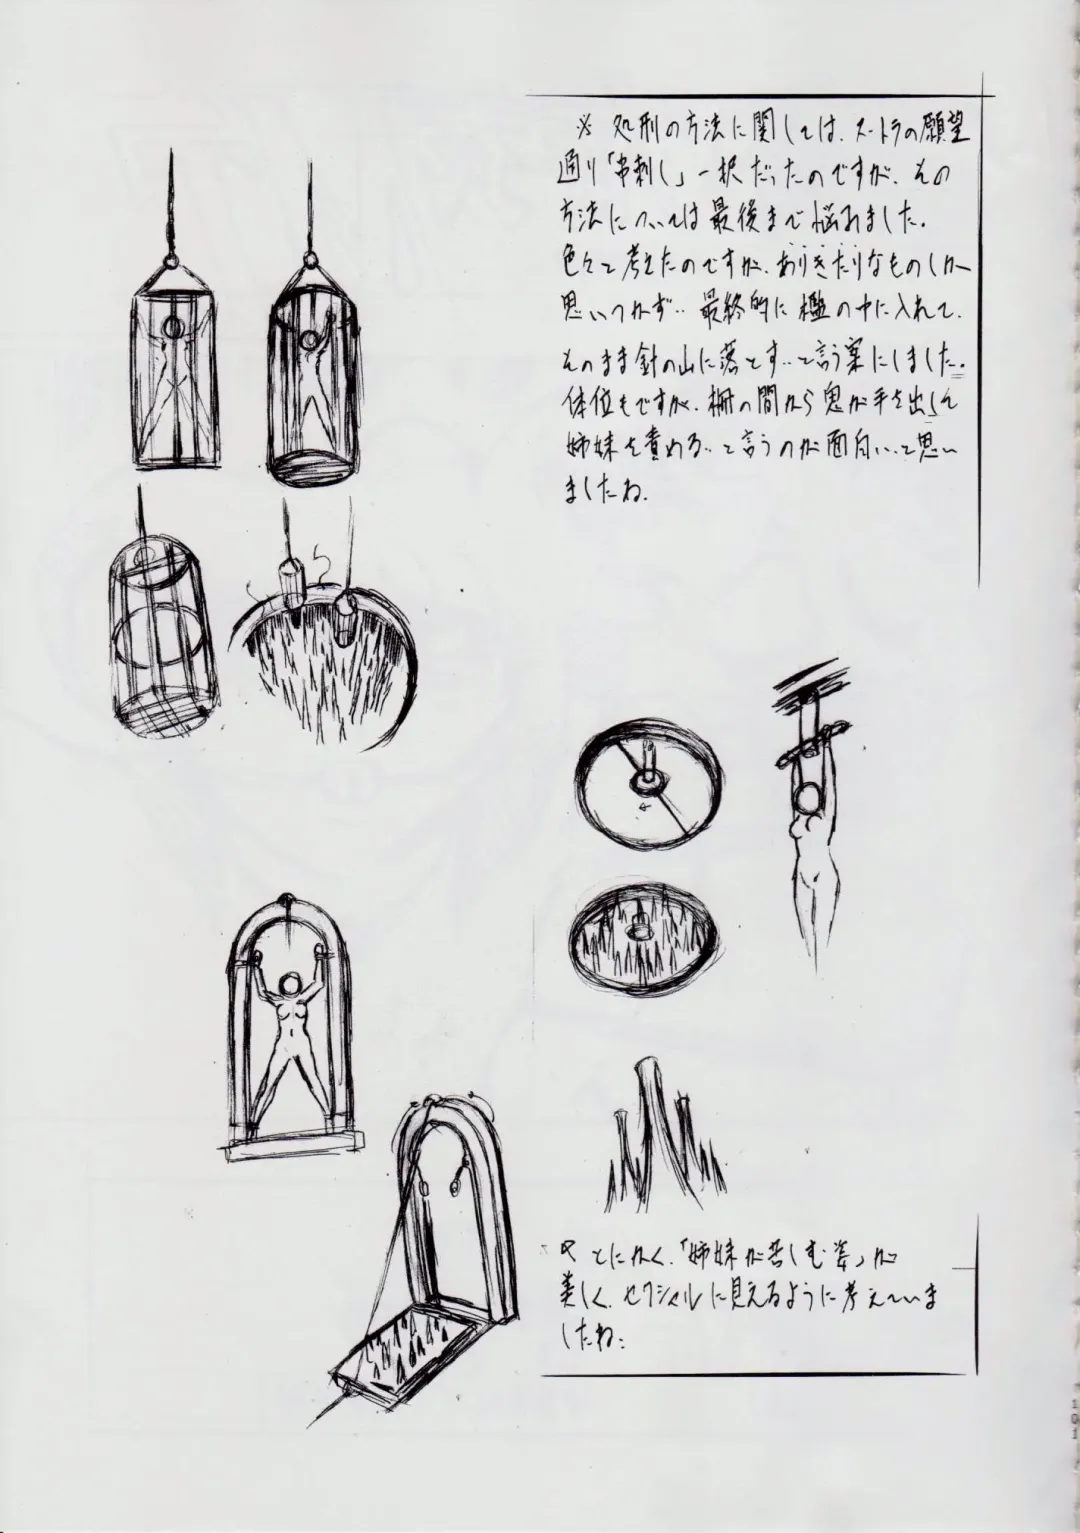 ※ 処刑の方法に関しては、スートラの願望
通り「串刺し」一択だったのですが、その
方法については最後まで悩みました。
色々と考えたのですが、ありきたりなものしか
思いつかず‥最終的に檻の中に入れて、
そのまま針の山に落とす‥と言う案にしました。
体位もですが、柵の間から鬼が手を出して
姉妹を責める‥と言うのが面白い‥と思い
ましたね。
とにかく、「姉妹が苦しむ姿」が
美しく、セクシャルに見えるように考えていま
したね。
101